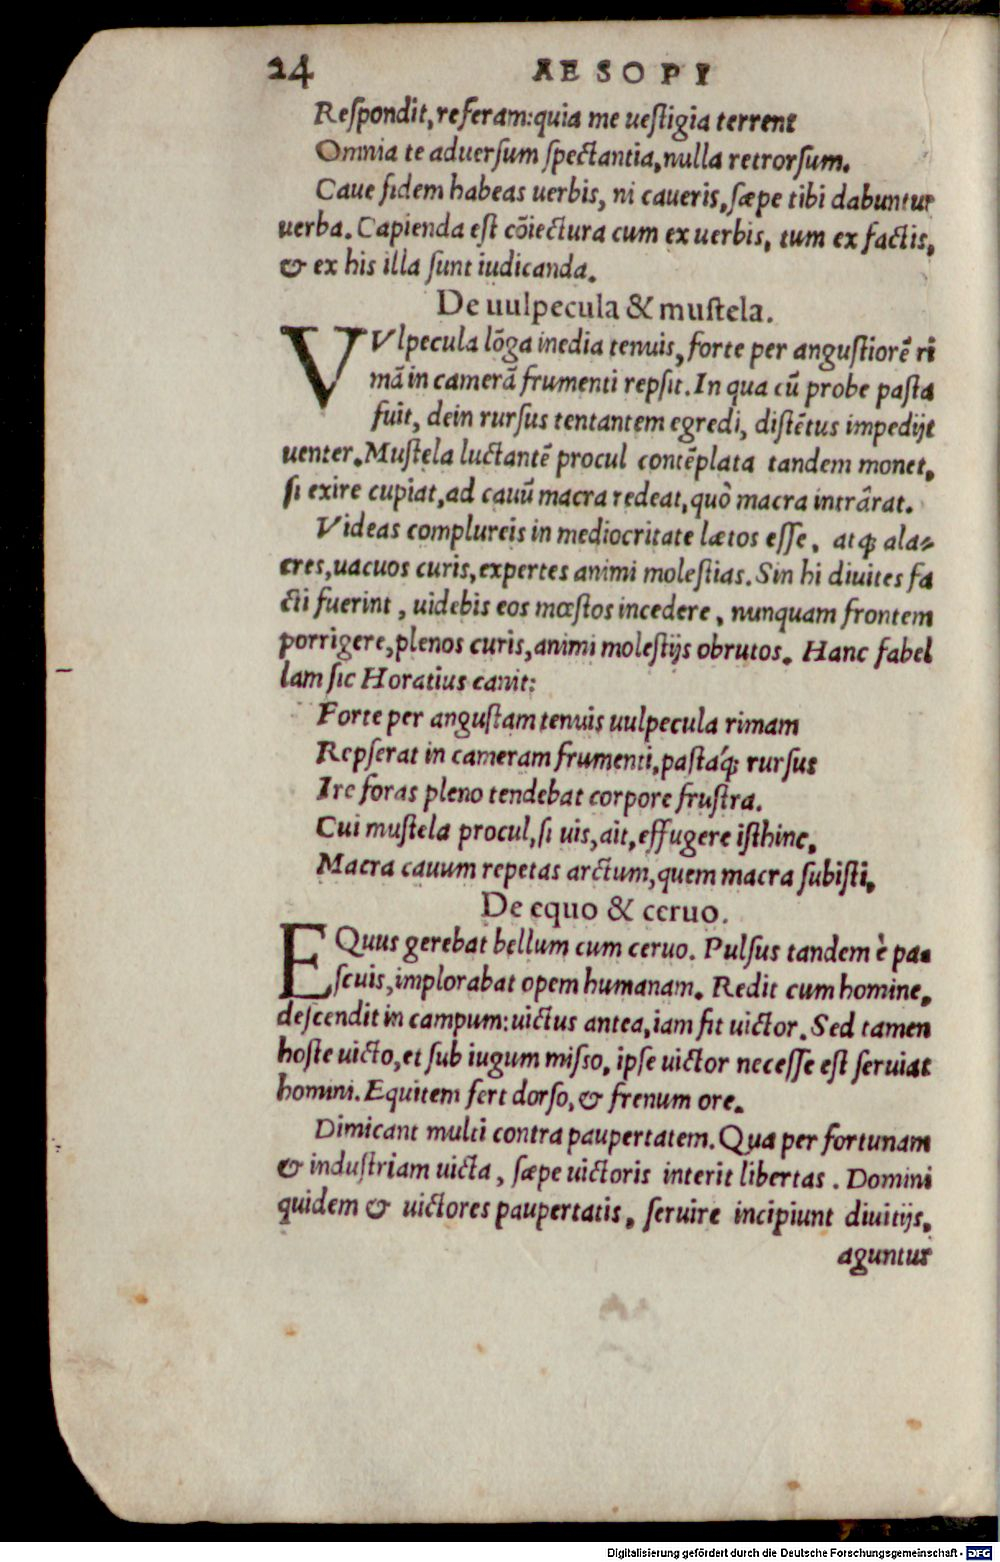 24 AESOPI
Reſpondit, referam: quia me ueſtigia terrent
Omnia te aduerſum ſpectantia, nulla retrorſum.
Caue fidem habeas uerbis, ni caueris, ſæpe tibi dabuntur
uerba. Capienda eſt cõiectura cum ex uerbis, tum ex factis,
& ex his illa ſunt iudicanda.
De uulpecula & muſtela.
VVlpecula lõga inedia tenuis, forte per anguſtiorẽ ri
mã in camerã frumenti repſit. In qua cũ probe paſta
fuit, dein rurſus tentantem egredi, diſtẽtus impedijt
uenter. Muſtela luctantẽ procul contẽplata tandem monet,
ſi exire cupiat, ad cauũ macra redeat, quò macra intrârat.
Videas complureis in mediocritate lætos eſſe, atq; ala-
cres, uacuos curis, expertes animi moleſtias. Sin hi diuites fa
cti fuerint, uidebis eos mœſtos incedere, nunquam frontem
porrigere, plenos curis, animi moleſtijs obrutos. Hanc fabel
lam ſic Horatius canit:
Forte per anguſtam tenuis uulpecula rimam
Repſerat in cameram frumenti, paſtáq; rurſus
Ire foras pleno tendebat corpore fruſtra.
Cui muſtela procul, ſi uis, ait, effugere iſthinc,
Macra cauum repetas arctum, quem macra ſubiſti.
De equo & ceruo.
EQuus gerebat bellum cum ceruo. Pulſus tandem è pa-
ſcuis, implorabat opem humanam. Redit cum homine,
deſcendit in campum: uictus antea, iam fit uictor. Sed tamen
hoſte uicto, et ſub iugum miſſo, ipſe uictor neceſſe eſt ſeruiat
homini. Equitem fert dorſo, & frenum ore.
Dimicant multi contra paupertatem. Qua per fortunam
& induſtriam uicta, ſæpe uictoris interit libertas. Domini
quidem & uictores paupertatis, ſeruire incipiunt diuitijs,
aguntur
Digitalisierung gefördert durch die Deutsche Forschungsgemeinschaft - DFG